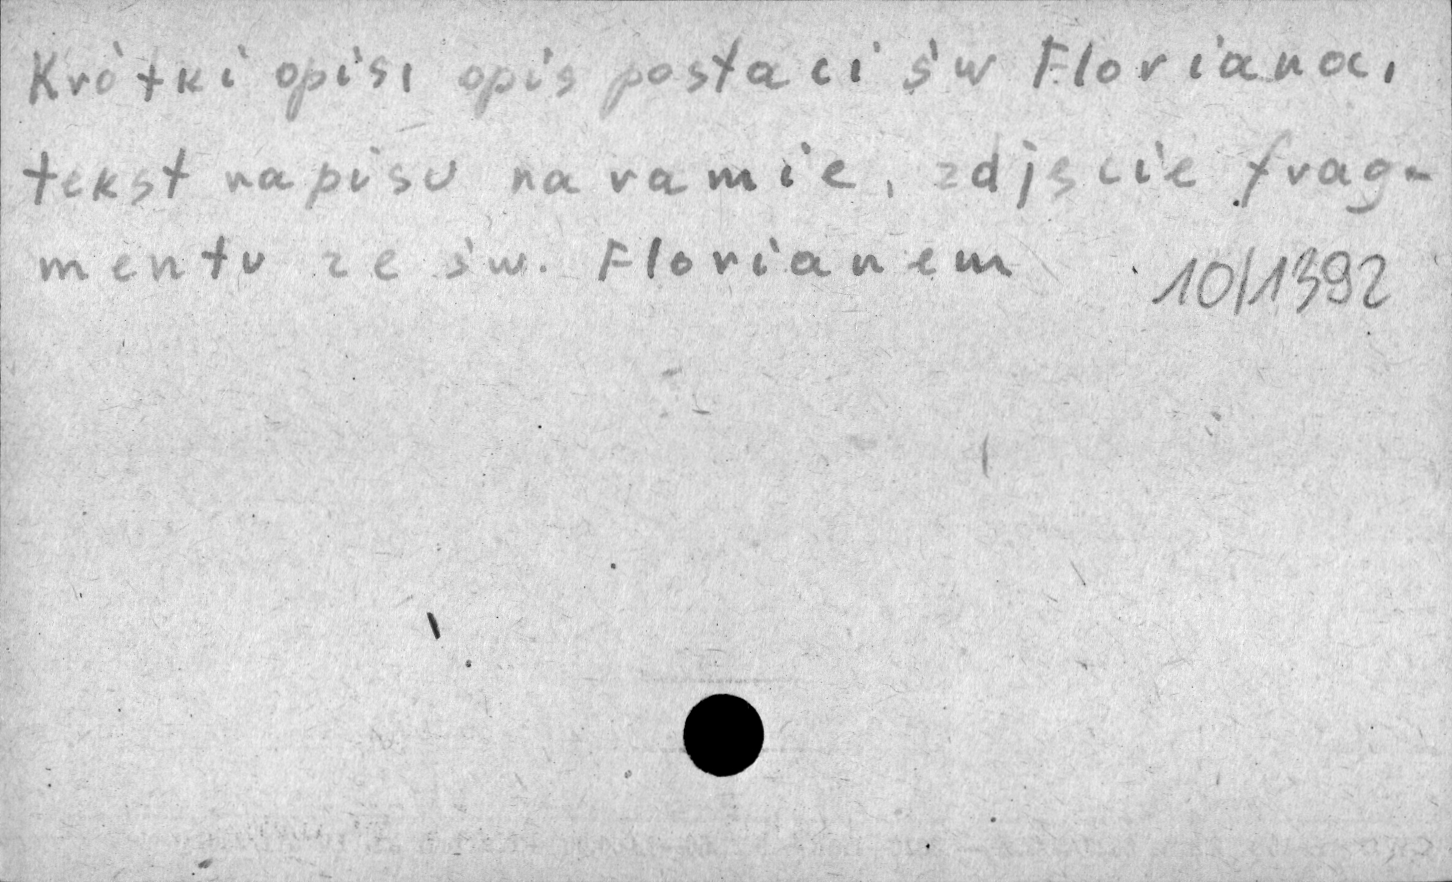 Krótki opis, opis postaci św Floriana,
tekst napisu na ramie, zdjęcie frag-
mentu ze św. Florianem
10/1392